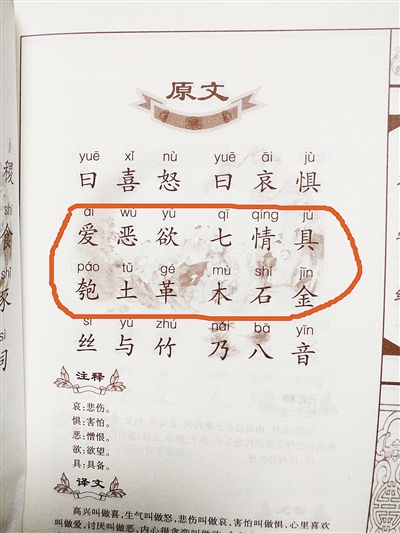 原文
yuē xǐ nù yuē āi jù
曰喜怒 曰哀惧
ài wù yù qī qíng jù
爱恶欲 七情具
páo tǔ gé mù shí jīn
匏土革 木石金
sī yǔ zhú nǎi bā yīn
丝与竹 乃八音
注释
哀:悲伤。
惧:害怕。
恶:憎恨。
欲:欲望。
具:具备。
译文
高兴叫做喜,生气叫做怒,悲伤叫做哀,害怕叫做惧,心里喜欢
叫做爱,讨厌叫做恶,内心很贪恋叫做欲,
稷
shí
食
shǐ
豕
sì
饲